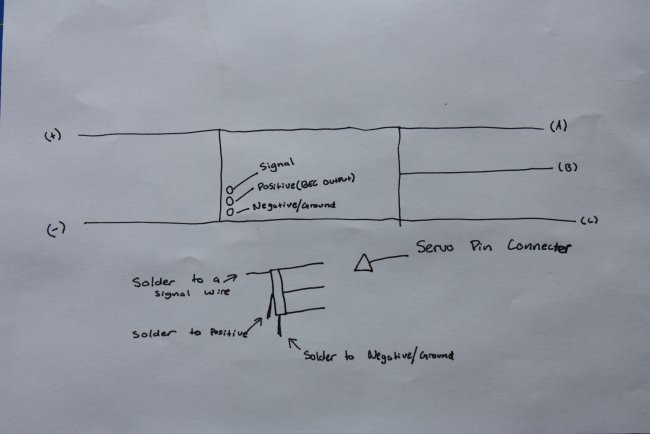 (+)
(A)
Signal
Positive(BEC Output)
(B)
Negative/Ground
(-)
(C)
Servo Pin Connecter
Solder to a
Signal wire
Solder to Positive
Solder to Negative/Ground